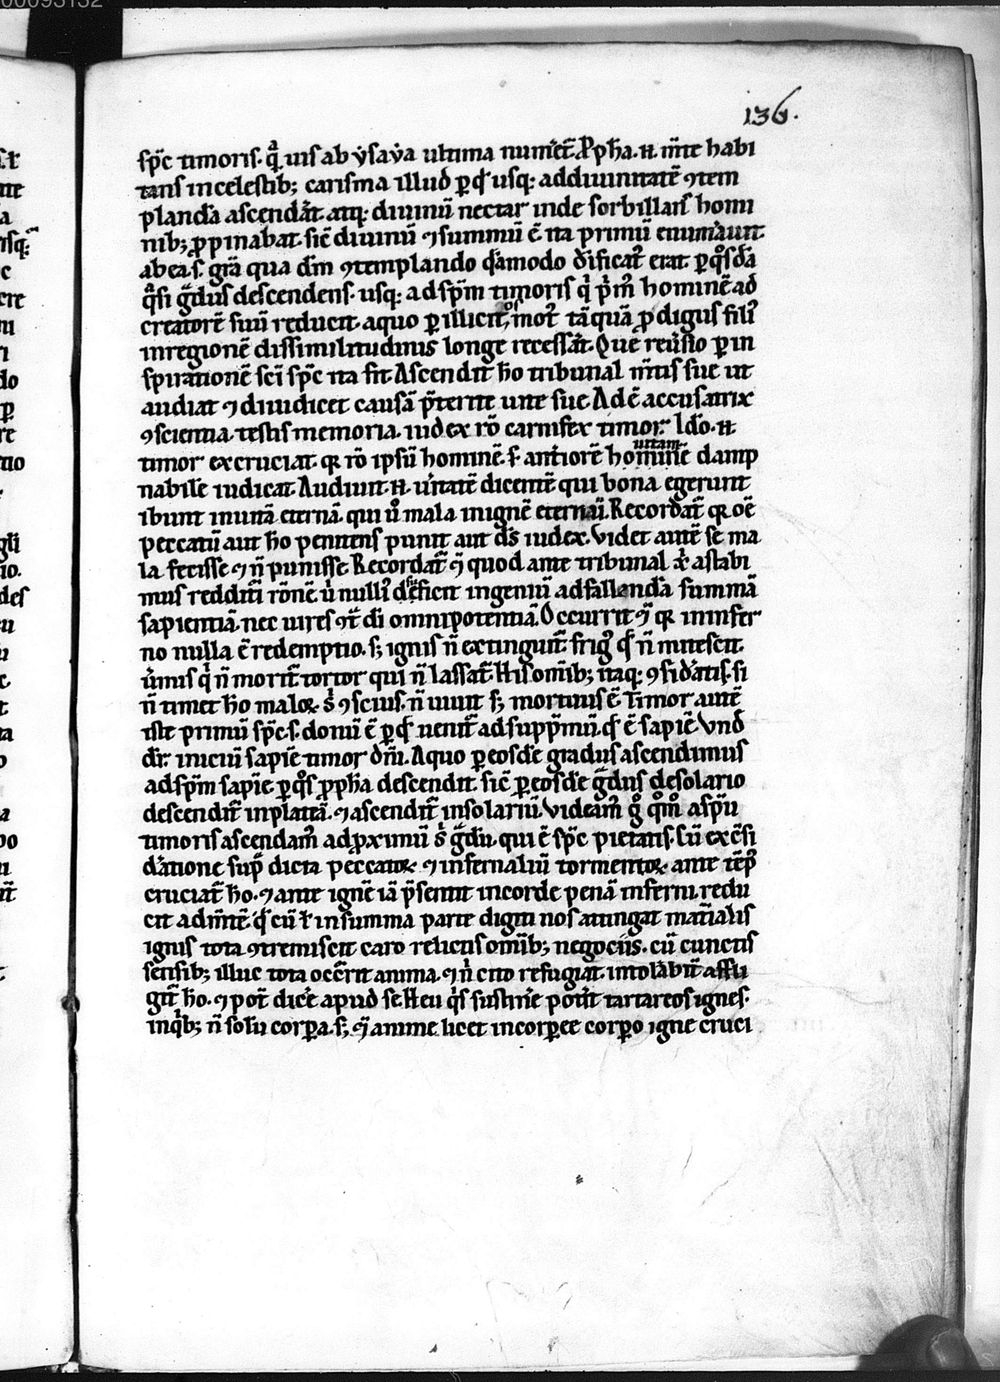 136.
sp̄c timoris. q̄ uis ab ẏsaẏa ultima num̄et̄. P̱pħa. n̄. m̄te habi
tans in celestib; carisma illud ꝑ qd̄ usq; ad diuinitatē ꝯtem
planda ascend̄at. atq; diuinū nectar inde sorbillans homi
nib; ꝓpinabat. sic̄ diuinū ⁊ summū ē ita primū enum̄auit.
ab ea. s. grā qua dm̄ ꝯtemplando
q̄si ḡdus descendens. usq; ad spm̄ timoris q̄ p̄m̄ hominē ad
creatorē suū reducit. a quo ꝑ illicit; mot̄ tāquā ꝓdigus fili᷒
in regionē dissimilitudinis longe recess̄at. Que reu̇sio ꝑ in
spirationē sc̄i sp̄c ita fit. Ascendit ħo tribunal m̄tis sue ut
audiat ⁊ diiudicet causā p̄terite uite sue. Adē accusatrix
ꝯscientia. testis memoria. iudex rō carnifex timor. Ido. n̄.
timor excruciat. qꝛ rō ipsū hominē. s. anťiorē hominē damp
nabilē iudicat. Audiuit. n̄. u̇itatē dicentē qui bona egerunt
ibunt in uitā eternā. qui u̇o mala in ignē eternū. Recordat̄ qꝛ oē
peccatū aut ħo penitens punit aut ds̄ iudex. Videt autē se ma
la fecisse ⁊ n̄ punisse. Recordat̄ ⁊ quod ante tribunal x̄ astabi
mus reddituri rōnē u̇ nulli᷒ deficit ingeniū ad fallenda summā
sapientiā. nec uires ꝯt̄ di omnipotentiā. Occurrit ⁊ qꝛ in infer
no nulla ē redemptio. s; ignis n̄ extinguit̄. frig᷒ qd̄ n̄ mitescit.
u̇mis q̇ n̄ morit̄. tortor qui n̄ lassat̄. His omīb; itaq; ꝯsid̄atis. si
n̄ timet ħo maloꝝ s̄ ꝯscius. n̄ uiuit s; mortuus ē. Timor autē
iste primū sp̄c. s. donū ē ꝑ qd̄ uenit̄ ad supp̄mū. qd̄ ē sapiē. Vnd̄
dr̄. iniciū sapiē timor dn̄i. A quo ꝑ eosde gradus ascendimus
ad spm̄ sapiē. ꝑ qos ꝓpħa descendit. sic̄ ꝑ eosde ḡdus de solario
descendit̄ in plateā. ⁊ ascendit̄ in solariū. Videam᷒ g̊ qm̊ a spu̅
timoris ascendam᷒ ad ꝓximū s̄ ḡdū. qui ē sp̄c pietatis. Cū ex ꝯsi
d̄atione sup̄ dicta peccatoꝝ ⁊ infernaliū tormentoꝝ ante tēp᷒
cruciat̄ ħo. ⁊ ante ignē iā p̄sentit in corde penā inferni. redu
cit ad m̄tē qd̄ cū ł in summa parte digiti nos attingat mat̄ialis
ignis tota ꝯtremiscit caro relictis omīb; negociis. cū cunctis
sensib; illuc tota oc̄rit anima. ⁊ n̄ cito refugiat. intol̄abilit̄ affli
git̄ ħo. ⁊ pot̄ dic̄e apud se. Heu q̇s sustin̄e pot̄it tartareos ignes.
in q̇b; n̄ solū corꝑa. s; ⁊ anime licet incorꝑee corꝑo igne cruci